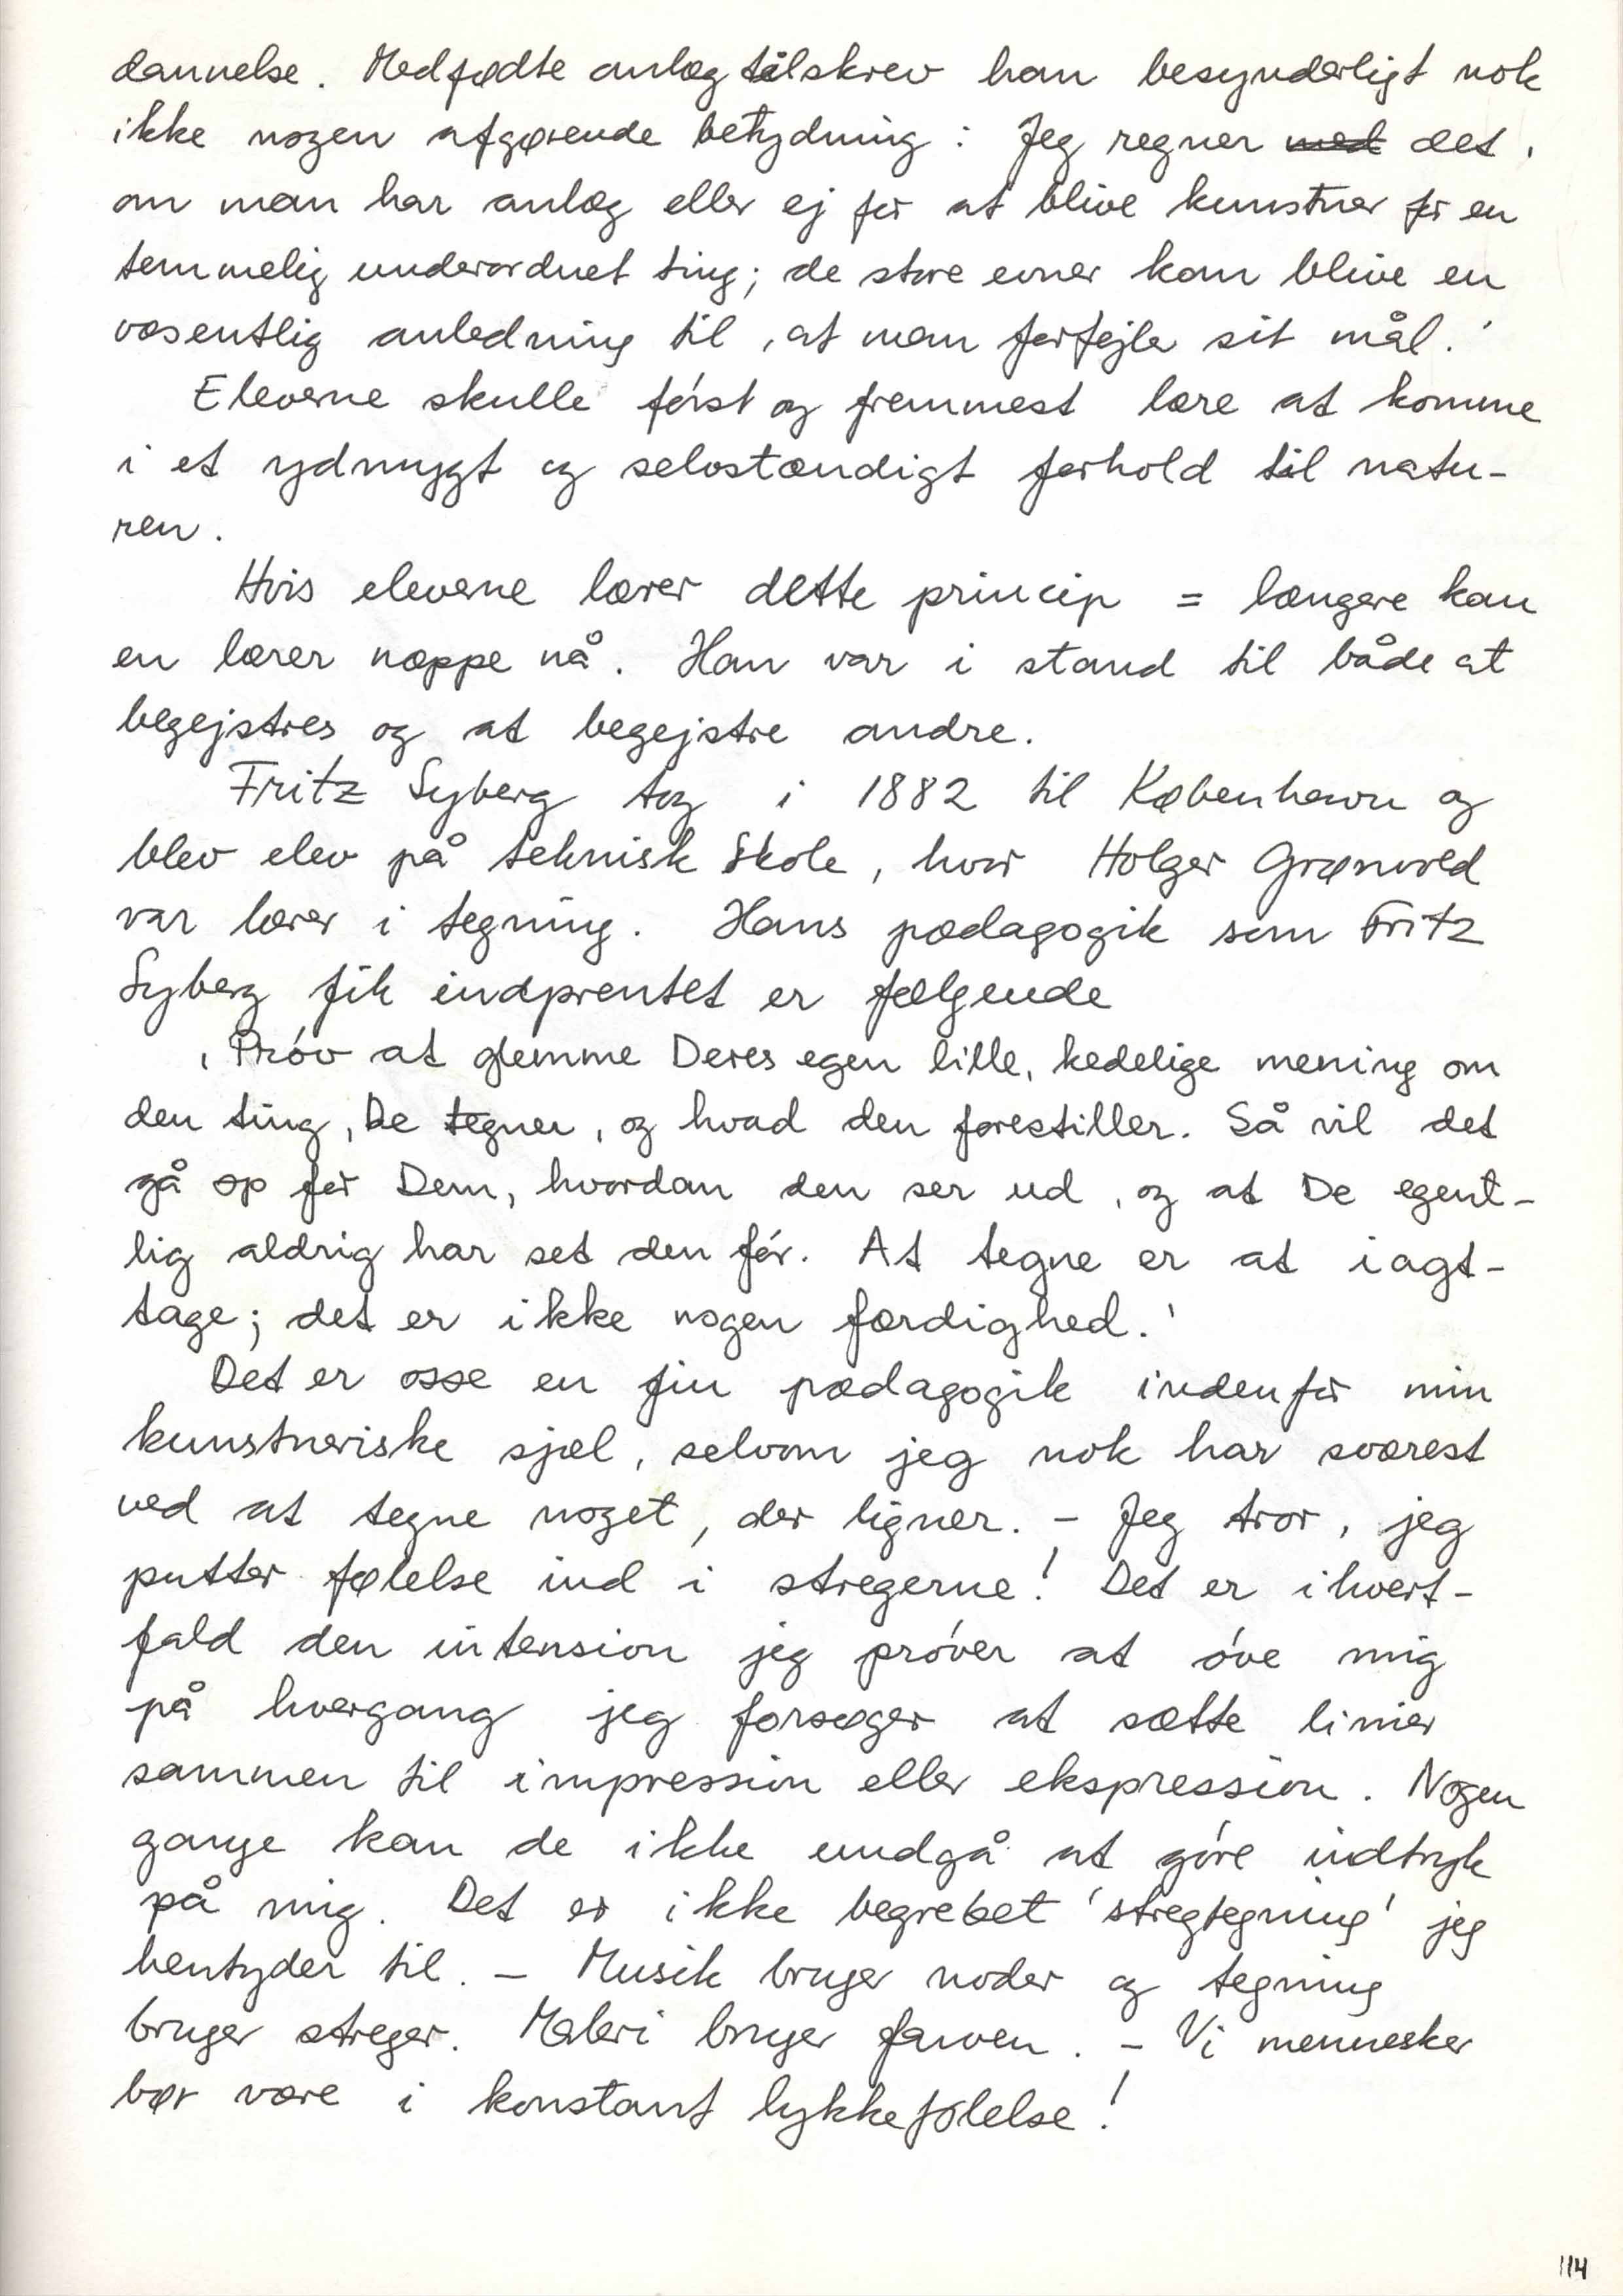 dannelse. Medfødte anlæg tilskrev han besynderligt nok
ikke nogen afgørende betydning : Jeg regner med det,
om man har anlæg eller ej for at blive kunstner for en
temmelig underordnet ting; de store evner kan blive en
væsentlig anledning til, at man forfejler sit mål.'
Eleverne skulle først og fremmest lære at komme
i et ydmygt og selvstændigt forhold til natu-
ren.
Hvis eleverne lærer dette princip = længere kan
en lærer næppe nå. Han var i stand til både at
begejstres og at begejstre andre.
Fritz Syberg tog i 1882 til København og
blev elev på teknisk Skole, hvor Holger Grønvold
var lærer i tegning. Hans pædagogik som Fritz
Syberg fik indprentet er følgende
, Prøv at glemme Deres egen lille, kedelige mening om
den ting, De tegner, og hvad den forestiller. Så vil det
gå op for Dem, hvordan den ser ud, og at De egent-
lig aldrig har set den før. At tegne er at iagt-
tage; det er ikke nogen færdighed.'
Det er osse en fin pædagogik indenfor min
kunstneriske sjæl, selvom jeg nok har sværest
ved at tegne noget, der ligner. - Jeg tror, jeg
putter følelse ind i stregerne! Det er ihvert-
fald den intension jeg prøver at øve mig
på hvergang jeg forsøger at sætte linier
sammen til impression eller ekspression. Nogen
gange kan de ikke undgå at gøre indtryk
på mig. Det er ikke begrebet 'stregtegning' jeg
hentyder til. - Musik bruger noder og tegning
bruger streger. Maleri bruger farven. - Vi mennesker
bør være i konstant lykkefølelse!
114